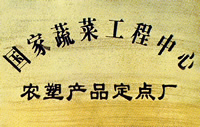 国家蔬菜工程中心
农塑产品定点厂